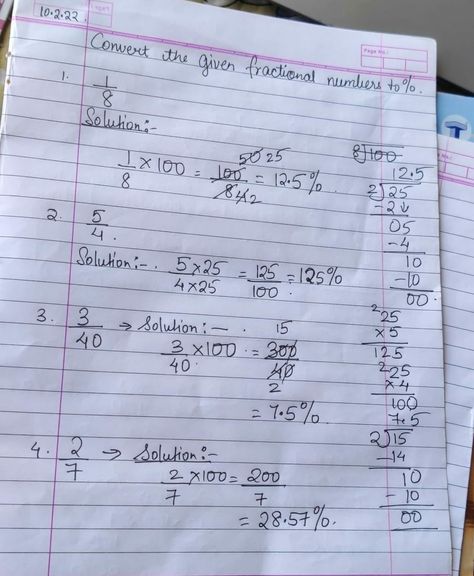 10.2.22.
Page No.:
Convert the given fractional numbers to %.
1. 1/8
Solution:-
1/8 × 100 = 100/8 = 12.5%.
50 25
4 2
8)100
12.5
2)25
-2↓
05
-4
10
-10
00.
2. 5/4.
Solution:-. 5×25/4×25 = 125/100 = 125%
²25
×5
125
²25
×4
100
3. 3/40 → Solution:—.
3/40 × 100 = 300/40
15
2
= 7.5%.
7.5
2)15
-14
10
-10
00
4. 2/7 → Solution:-
2/7 ×100 = 200/7
= 28.57%.